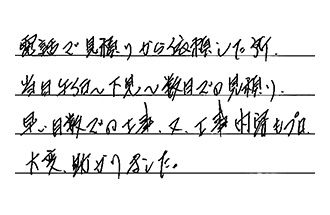 電話で見積りから依頼した所、
当日午後〜下見〜数日での見積り、
早い日数での工事、又、工事内容もプロ
大変、助かりました。